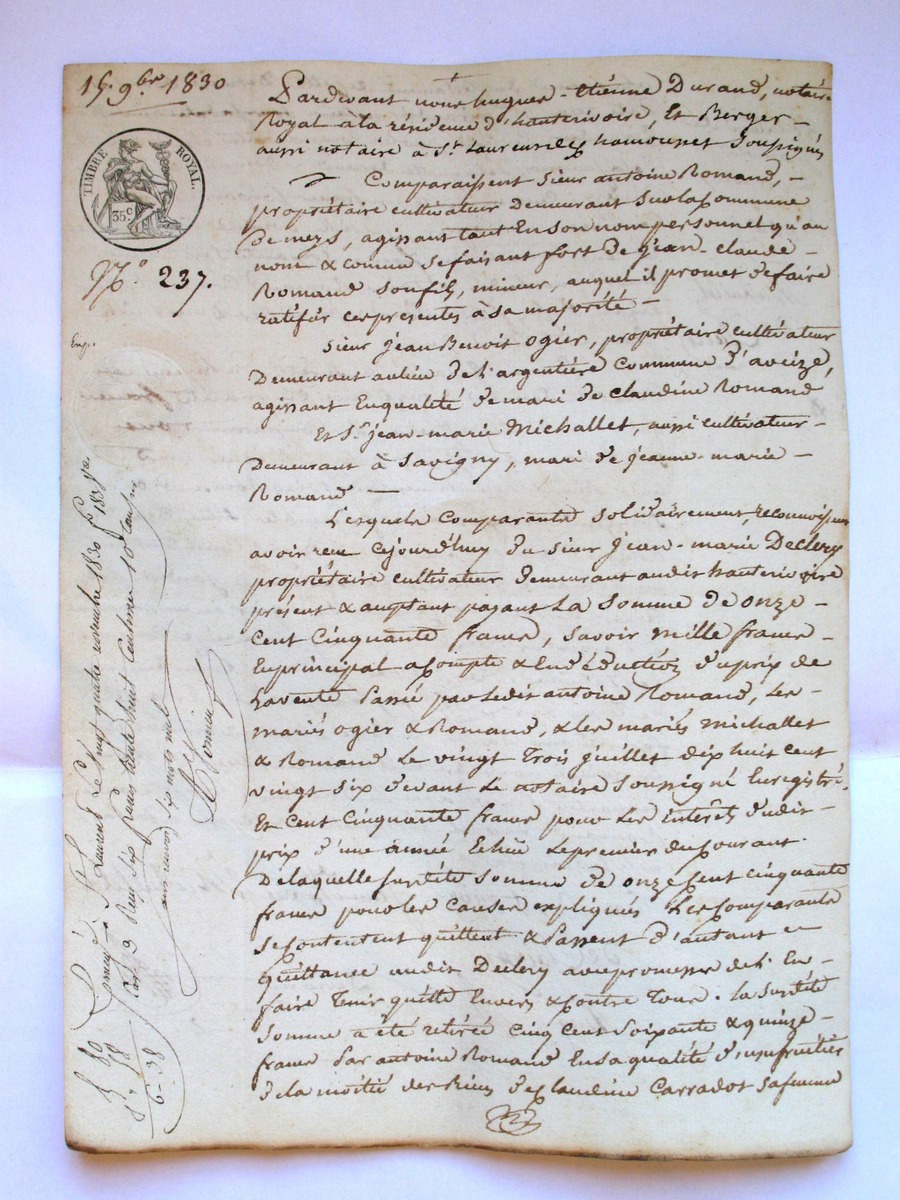 15 9bre 1830
TIMBRE ROYAL.
35c
No 237.
Pardevant nous hugues-étienne Durand, notaire
Royal à la résidence d'hauterivoire, Et Berger
aussi notaire à St Laurent de chamousset soussignés
Comparaissent Sieur antoine Romand,
propriétaire cultivateur demeurant Sur la Commune
de meys, agissant tant En son nom personnel qu'au
nom & comme se faisant fort de jean-claude
Romand son fils, mineur, auquel il promet de faire
ratifier ces présentes à sa majorité
Sieur jean Benoit Ogier, propriétaire cultivateur
Demeurant au lieu de l'argentière Commune d'aveize,
agissant En qualité de mari de claudine Romand
Et Sr jean-marie Michallet, aussi cultivateur
demeurant à Savigny, mari de jeanne-marie
Romand
Lesquels Comparants Solidairement, reconnoissent
avoir reçu cejourd'huy du sieur jean-marie Declery
propriétaire cultivateur demeurant audit hauterivoire
présent & acceptant payant La Somme de onze
cent Cinquante francs, savoir mille francs
En principal a Compte & En déduction du prix de
La vente Passée par Ledit antoine Romand, Les
mariés ogier & Romand, & les mariés Michallet
& Romand Le vingt Trois juillet dix huit cent
vingt six devant Le notaire Soussigné Enregistré.
Et Cent Cinquante francs pour Les intérêts dudit
prix d'une année Echue Le premier du Courant.
De laquelle Susdite Somme de onze Cent Cinquante
francs pour les Causes expliquées Les Comparants
Se Contentent quittent & Passent d'autant
Quittance audit Declery avec promesse de l'En
faire Tenir quitte Envers & Contre Tous. La Susdite
Somme a été retirée Cinq Cent Soixante & quinze
francs Par antoine Romand En Sa qualité d'usufruitier
de la moitié des Biens de Claudine Carradot Sa femme
St Laurent Le neuf novembre 1830
Reçu six francs trente huit Centimes
6-38